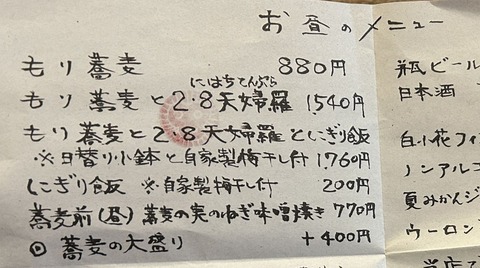 お昼のメニュー
もり蕎麦 880円
にはちてんぷら
もり蕎麦と2・8天婦羅 1,540円
もり蕎麦と2・8天婦羅とにぎり飯
※日替り小鉢と自家製梅干し付 1,760円
にぎり飯 ※自家製梅干し付 200円
蕎麦前(昼) 蕎麦の実のねぎ味噌焼き 770円
◎ 蕎麦の大盛り +400円
瓶ビール
日本酒
白小花フィ
ノンアルコ
夏みかんジ
ウーロン
当店で